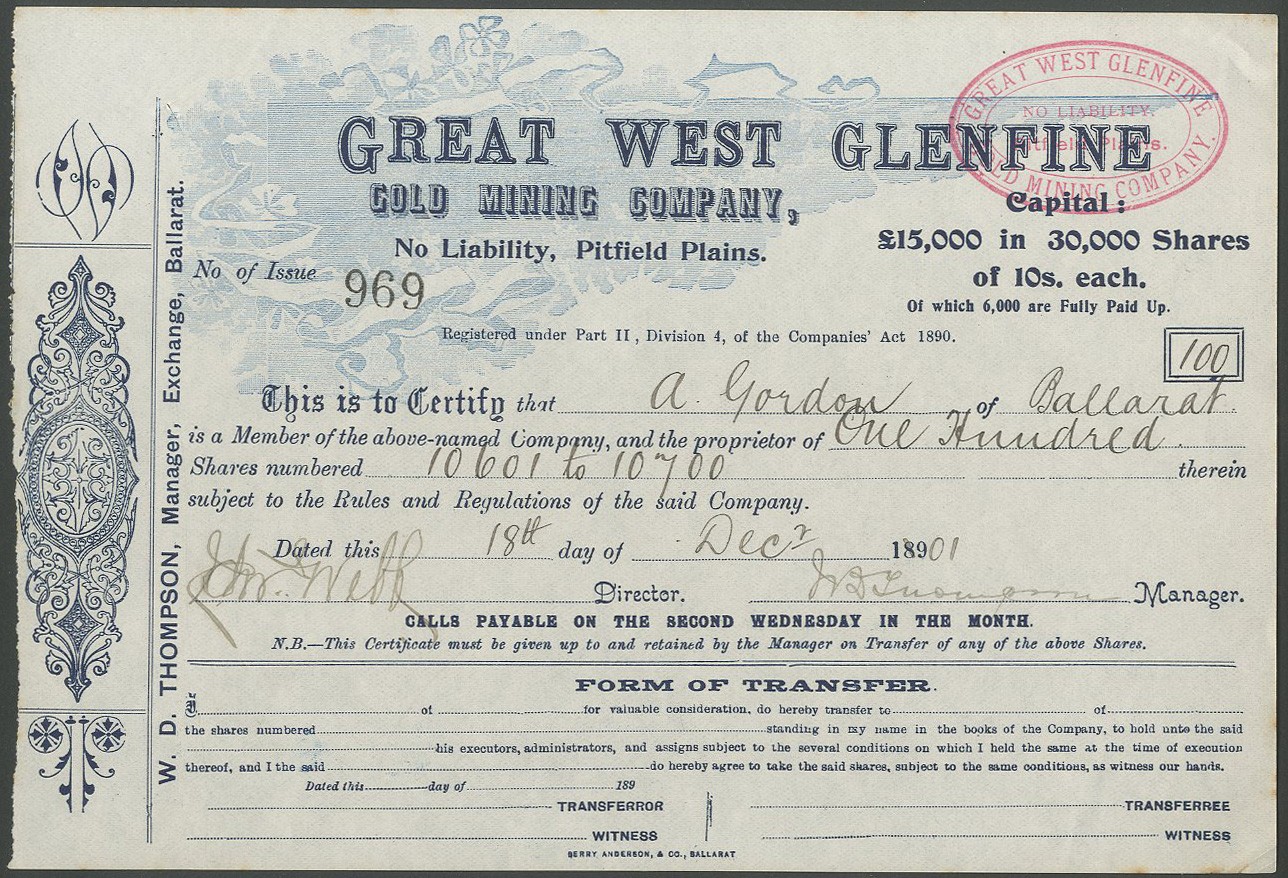 GREAT WEST GLENFINE
GOLD MINING COMPANY,
No Liability, Pitfield Plains.
GREAT WEST GLENFINE
NO LIABILITY.
Pitfield Plains.
GOLD MINING COMPANY.
Capital:
£15,000 in 30,000 Shares
of 10s. each.
Of which 6,000 are Fully Paid Up.
No of Issue 969
Registered under Part II, Division 4, of the Companies' Act 1890.
100
This is to Certify that A. Gordon of Ballarat.
is a Member of the above-named Company, and the proprietor of One Hundred
Shares numbered 10601 to 10700 therein
subject to the Rules and Regulations of the said Company.
Dated this 18th day of Decr 18901
Jno. Webb Director. W D Thompson Manager.
CALLS PAYABLE ON THE SECOND WEDNESDAY IN THE MONTH.
N.B.—This Certificate must be given up to and retained by the Manager on Transfer of any of the above Shares.
FORM OF TRANSFER.
I of for valuable consideration, do hereby transfer to of
the shares numbered standing in my name in the books of the Company, to hold unto the said
his executors, administrators, and assigns subject to the several conditions on which I held the same at the time of execution
thereof, and I the said do hereby agree to take the said shares, subject to the same conditions, as witness our hands.
Dated this day of 189
TRANSFERROR TRANSFERREE
WITNESS WITNESS
BERRY ANDERSON, & CO., BALLARAT
W. D. THOMPSON, Manager, Exchange, Ballarat.